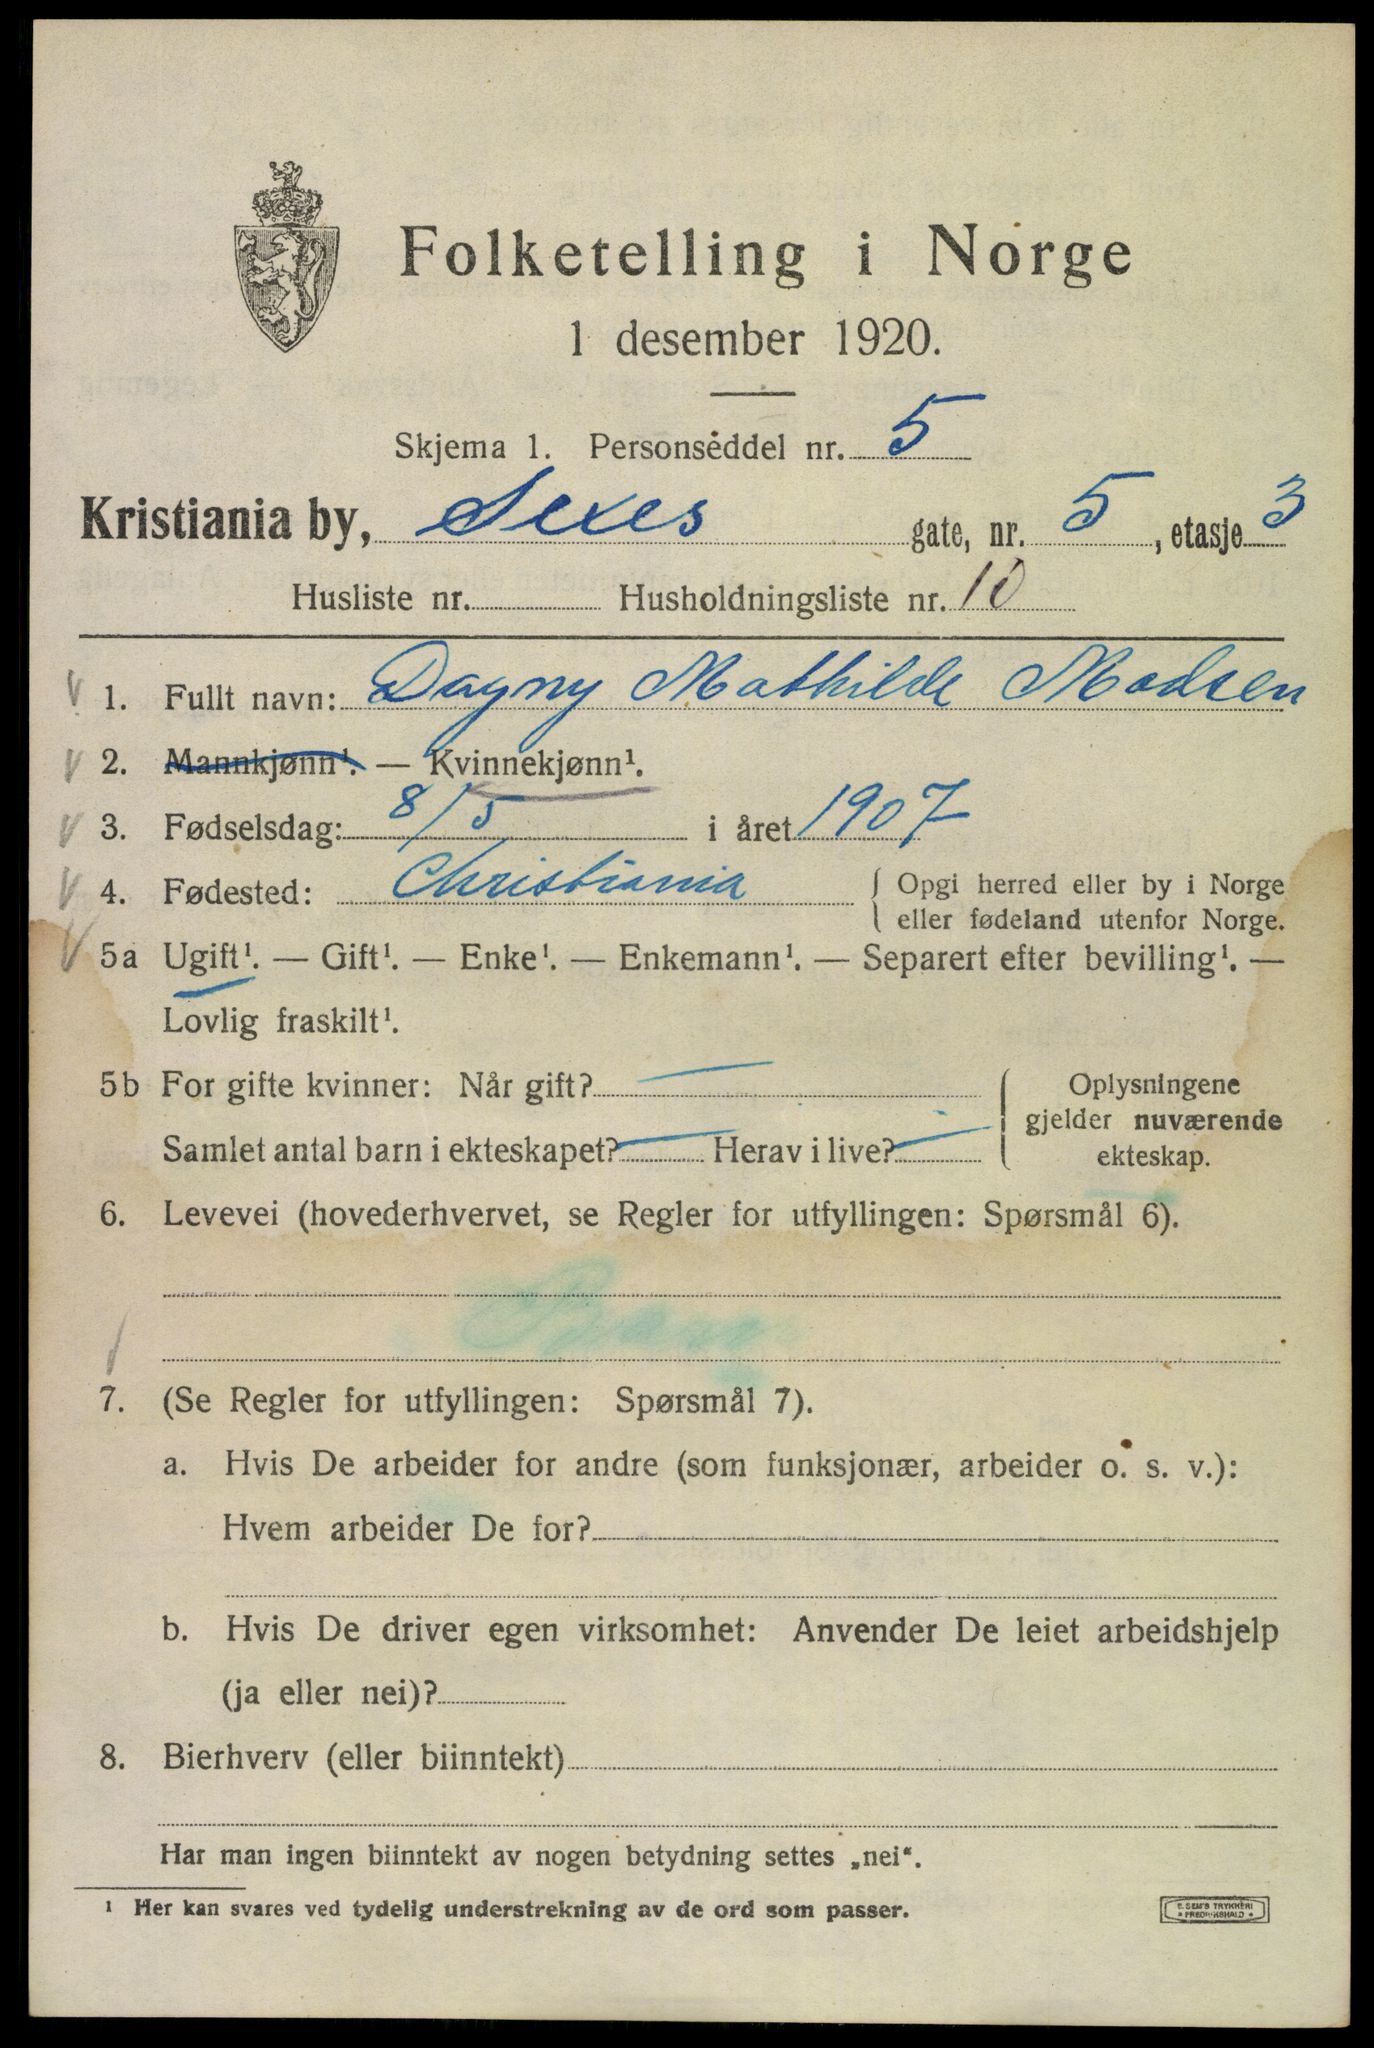 Folketelling i Norge
1 desember 1920.
Skjema 1. Personseddel nr. 5
Kristiania by, Sexes gate, nr. 5, etasje 3
Husliste nr. Husholdningsliste nr. 10
1. Fullt navn: Dagny Mathilde Madsen
2. Mannkjønn¹. — Kvinnekjønn¹.
3. Fødselsdag: 8/5 i året 1907
4. Fødested: Christiania { Opgi herred eller by i Norge
eller fødeland utenfor Norge.
5a Ugift¹. — Gift¹. — Enke¹. — Enkemann¹. — Separert efter bevilling¹. —
Lovlig fraskilt¹.
5b For gifte kvinner: Når gift? —
Samlet antal barn i ekteskapet? — Herav i live? —
{ Oplysningene
gjelder nuværende
ekteskap.
6. Levevei (hovederhvervet, se Regler for utfyllingen: Spørsmål 6).
7. (Se Regler for utfyllingen: Spørsmål 7).
a. Hvis De arbeider for andre (som funksjonær, arbeider o. s. v.):
Hvem arbeider De for?
b. Hvis De driver egen virksomhet: Anvender De leiet arbeidshjelp
(ja eller nei)?
8. Bierhverv (eller biinntekt)
Har man ingen biinntekt av nogen betydning settes „nei".
¹ Her kan svares ved tydelig understrekning av de ord som passer.
E. SEM'S TRYKKERI
FREDRIKSHALD